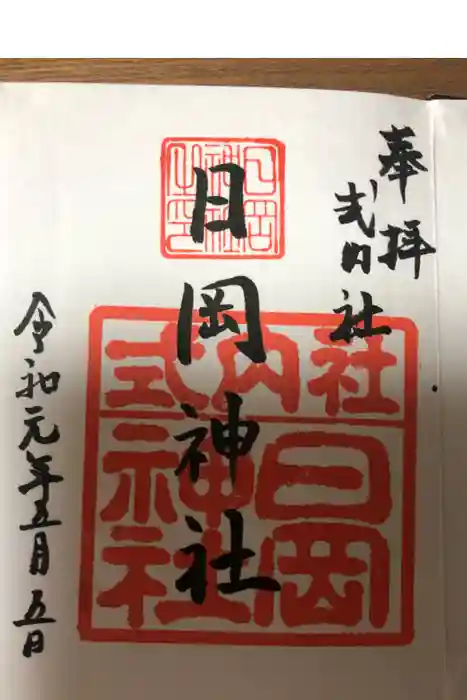 奉拝
式内社
日岡神社
日岡神社之印
式内社
日岡
神社
令和元年五月五日